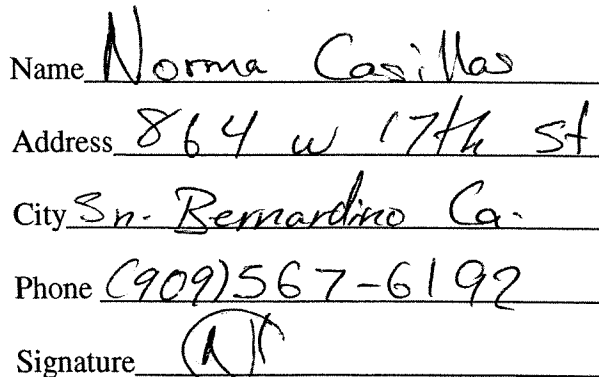 Name Norma Casillas
Address 864 w 17th st
City Sn. Bernardino Ca.
Phone (909)567-6192
Signature